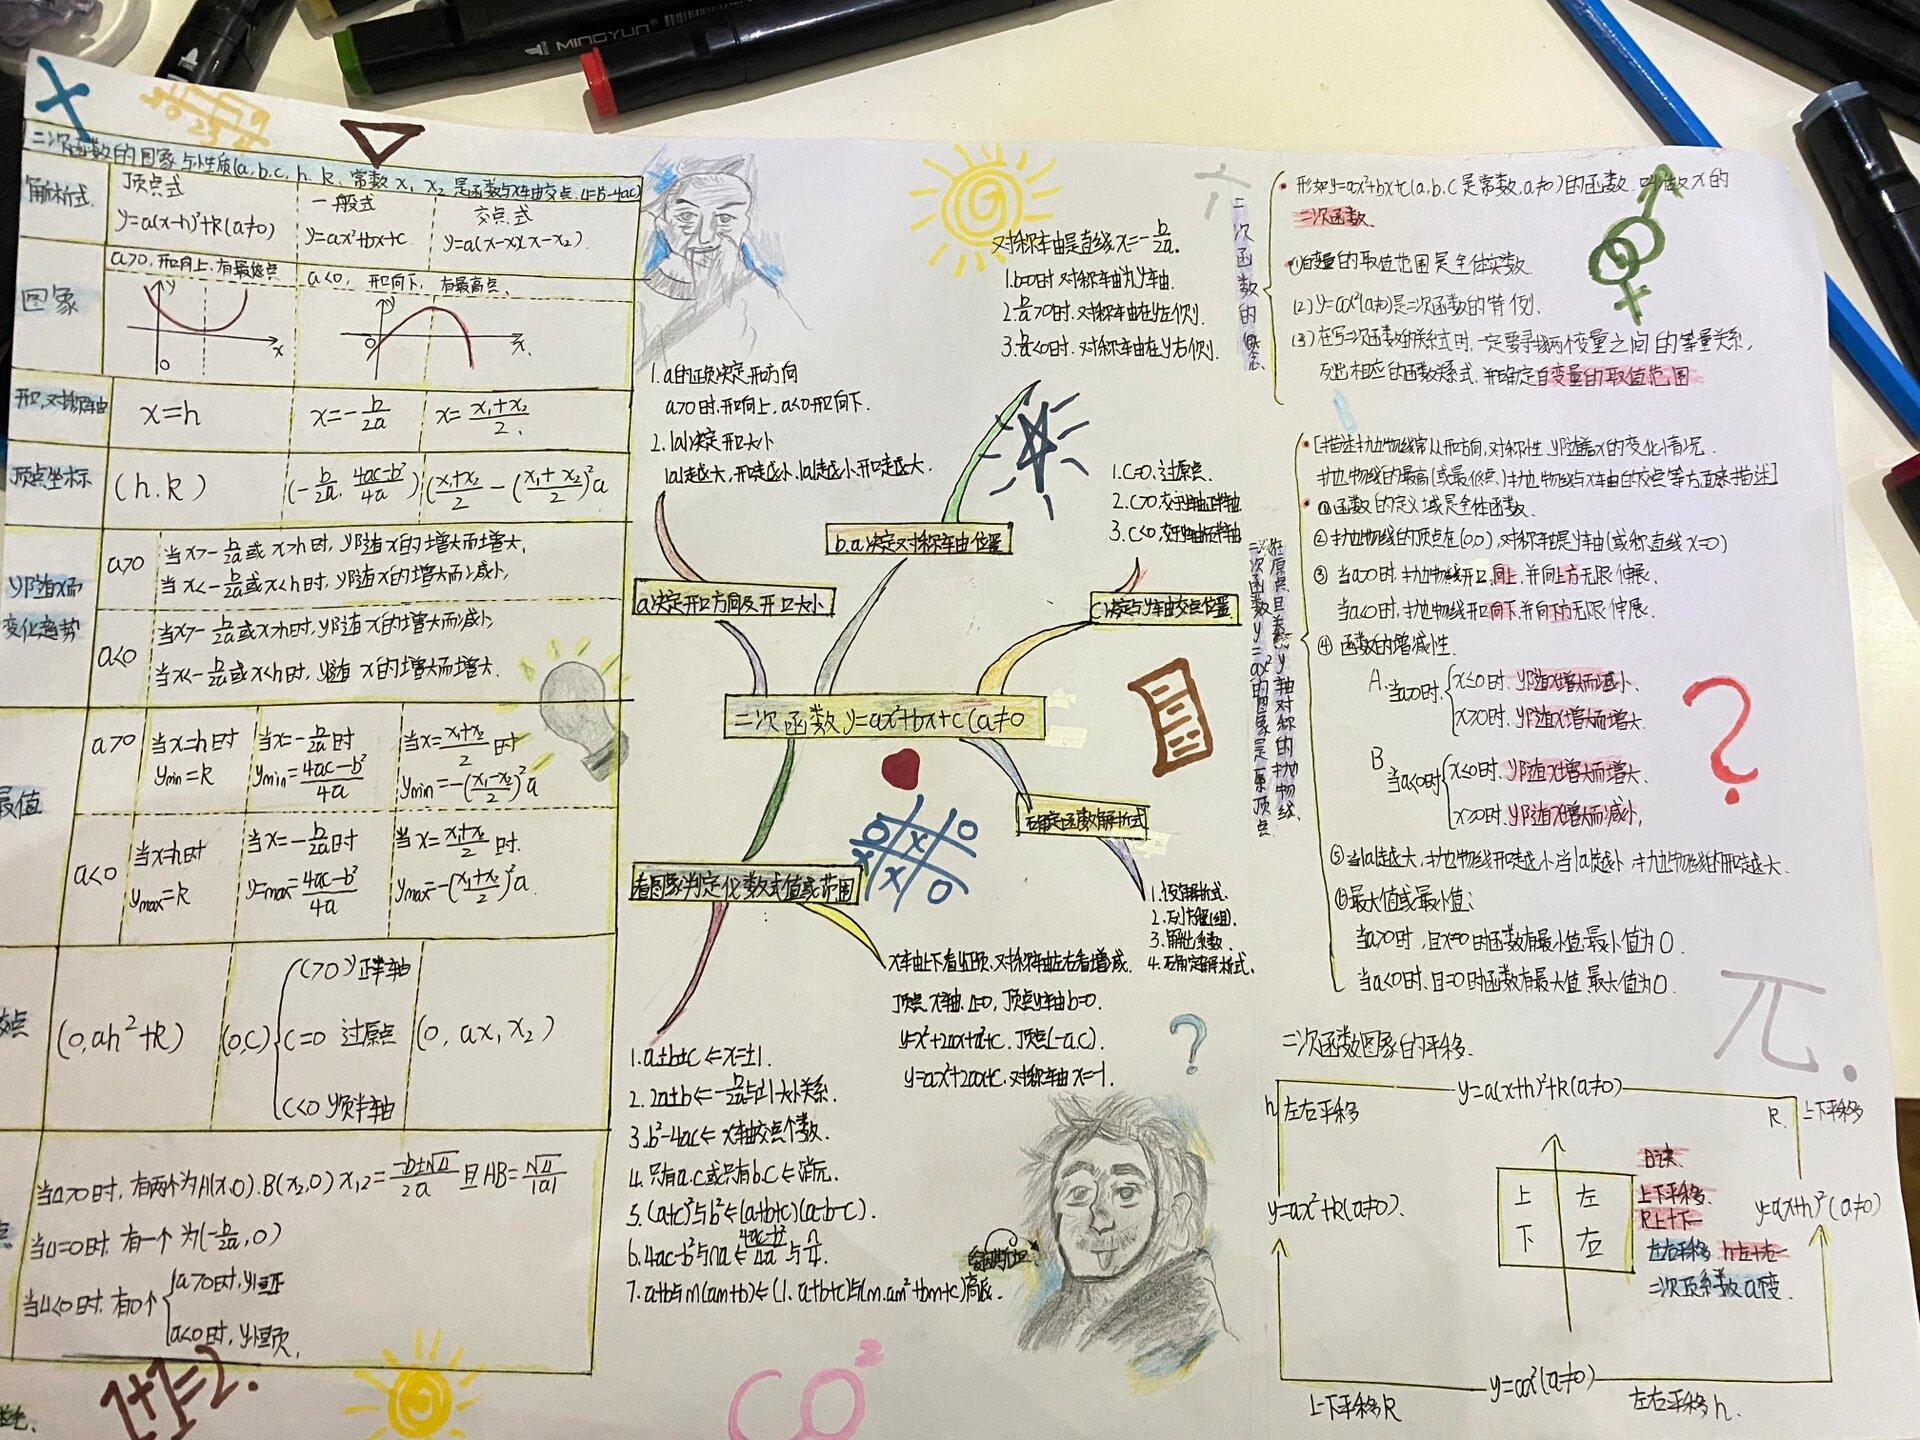 MINGYUN
二次函数的图象与性质(a.b.c, h. k. 常数 x₁ x₂ 是函数与x轴由交点 Δ=b²-4ac)
解析式
顶点式
y=a(x-h)²+k(a≠0)
一般式
y=ax²+bx+c
交点式
y=a(x-x)(x-x₂)
图象
a>0, 开口向上, 有最低点
a<0, 开口向下, 有最高点.
y
x
O
y
x
O
开口,对称轴
x=h
x=-b/2a
x=(x₁+x₂)/2
顶点坐标
(h.k)
(-b/2a, (4ac-b²)/4a)
((x₁+x₂)/2 -((x₁+x₂)/2)²a
y随x而
变化趋势
a>0
当x>-b/2a或 x>h时, y随x的增大而增大,
当x<-b/2a或x<h时, y随x的增大而减小,
a<0
当x>-b/2a或x>h时, y随x的增大而减小
当x<-b/2a或x<h时, y随 x的增大而增大.
最值
a>0
当x=h时
ymin=k
当x=-b/2a时
ymin=(4ac-b²)/4a
当x=(x₁+x₂)/2时
ymin=-((x₁-x₂)/2)²a
a<0
当x=h时
ymax=k
当x=-b/2a时
y=max=(4ac-b²)/4a
当x=(x₁+x₂)/2时.
ymax=-((x₁+x₂)/2)²a.
交点
(0,ah²+k)
(0,c)
c>0 y正半轴
c=0 过原点
c<0 y负半轴
(0, ax, x₂)
点
当Δ>0时, 有两个为A(x,0).B(x₂,0) x₁,₂=(-b±√Δ)/2a 且AB=√Δ/|a|
当Δ=0时, 有一个为(-b/2a,0)
当Δ<0时, 有0个
a>0时, y恒正
a<0时, y恒负,
1+1=2.
1.a的正负决定开口方向
a>0时,开口向上, a<0开口向下.
2.|a|决定开口大小
|a|越大,开口越小,|a|越小,开口越大.
a决定开口方向及开口大小
对称轴是直线x=-b/2a.
1.b=0时 对称轴为y轴.
2.b/a>0时.对称轴在y左侧.
3.b/a<0时.对称轴在y右侧.
b.a决定对称轴位置
1.C=0.过原点.
2.C>0,交于y轴正半轴
3.C<0,交于y轴负半轴
C决定与y轴交点位置
二次函数y=ax²+bx+c(a≠0
确定函数解析式
1.设解析式.
2.列方程(组).
3.解出系数.
4.确定解析式.
看图象判定代数式值或范围
x轴上下看正负,对称轴左右看增减.
顶点.x轴.Δ=0, 顶点y轴b=0.
y=x²+2ax+a²+c.顶点(-a.c).
y=ax²+2ax+c.对称轴x=-1.
1.a±b+c⇐x=±1.
2.2a±b⇐-b/2a与±1大小关系.
3.b²-4ac⇐x轴交点个数.
4.只有a.c或只有b.c⇐消元.
5.(a+c)²与b²⇐(a+b+c)(a-b-c).
7.a+b与m(am+b)⇐(1.a+b+c)与(m.am²+bm+c)高低.
CO²
二次函数的概念
形如y=ax²+bx+c(a.b.c是常数,a≠0)的函数.叫做x的
二次函数.
(1)自变量的取值范围是全体实数.
(2)y=ax²(a≠0)是二次函数的特例.
(3)在写二次函数的关系式时.一定要寻找两个变量之间的等量关系,
列出相应的函数关系式,并确定自变量的取值范围
二次函数y=ax²的图象是一条顶点
在原点且关于y轴对称的抛物线.
[描述抛物线常从开口方向,对称性,y随着x的变化情况,
抛物线的最高(或最低点)抛物线与x轴的交点等方面来描述]
①函数的定义域是全体函数.
②抛物线的顶点在(0,0),对称轴是y轴(或称直线x=0)
③当a>0时.抛物线开口向上,并向上方无限伸展.
当a<0时.抛物线开口向下并向下方无限伸展.
④函数的增减性.
A.当a>0时.
x≤0时.y随x增大而减小.
x>0时.y随x增大而增大.
B当a<0时
x<0时.y随x增大而增大.
x>0时.y随x增大而减小,
⑤当|a|越大,抛物线开口越小当|a|越小 抛物线的开口越大.
⑥最大值或最小值:
当a>0时,且x=0时函数有最小值,最小值为0.
当a<0时.且=0时函数有最大值 最大值为0.
π.
二次函数图象的平移.
y=a(x+h)²+k(a≠0)
h 左右平移
k. 上下平移
y=ax²+k(a≠0).
y=a(x+h)²(a≠0)
上 左
下 右
口诀.
上下平移.
k上+下-
左右平移 h左+右-
二次项系数a不变.
y=ax²(a≠0)
上下平移k
左右平移h.